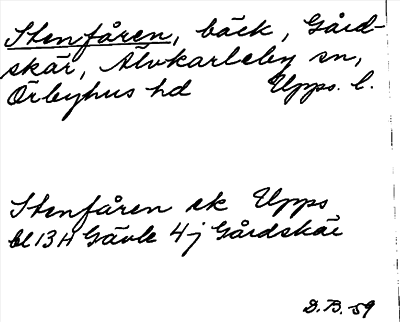 Stenfåren, bäck, Gård-
skär, Älvkarleby sn,
Örbyhus hd Upps. l.
Stenfåren ek Upps
bl 13H Gävle 4j Gårdskär
D.B. 59